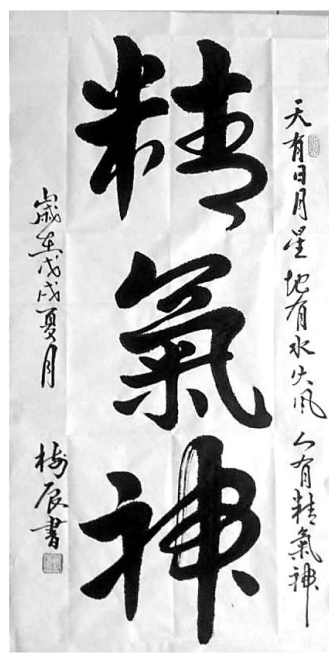 天有日月星地有水火风人有精氣神
精氣神
歲在戊戌夏月
梅辰書